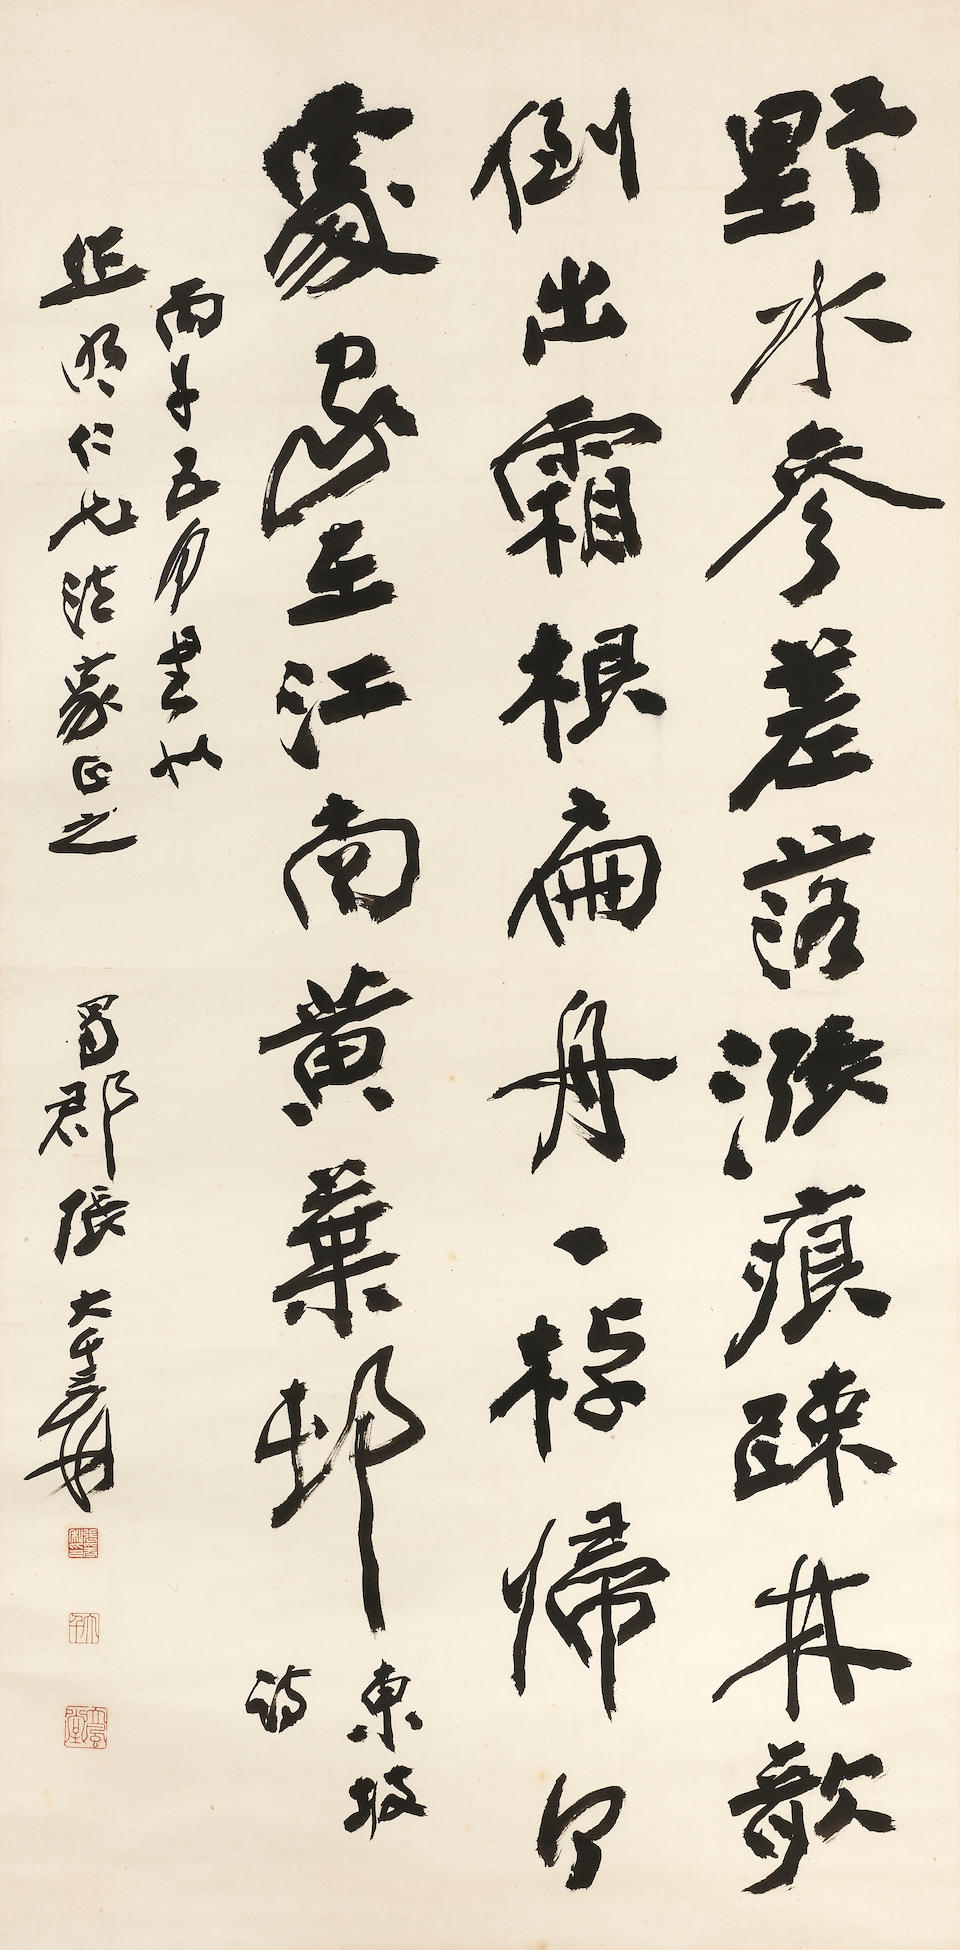 野水參差落漲痕疎林欹
倒出霜根扁舟一棹歸何
處家在江南黃葉邨
東坡
詩
丙子五月書似
明仁兄法家正之 蜀郡張大千爰
大千
大風堂